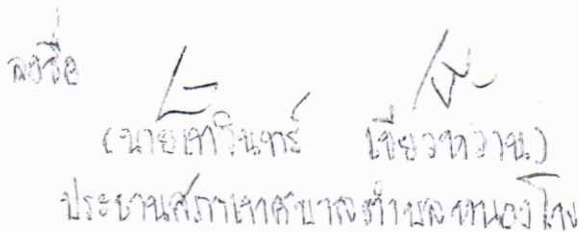 ลงชื่อ
(นายเทวินทร์ เขียวหวาน)
ประธานสภาเทศบาลตำบลหนองโพง